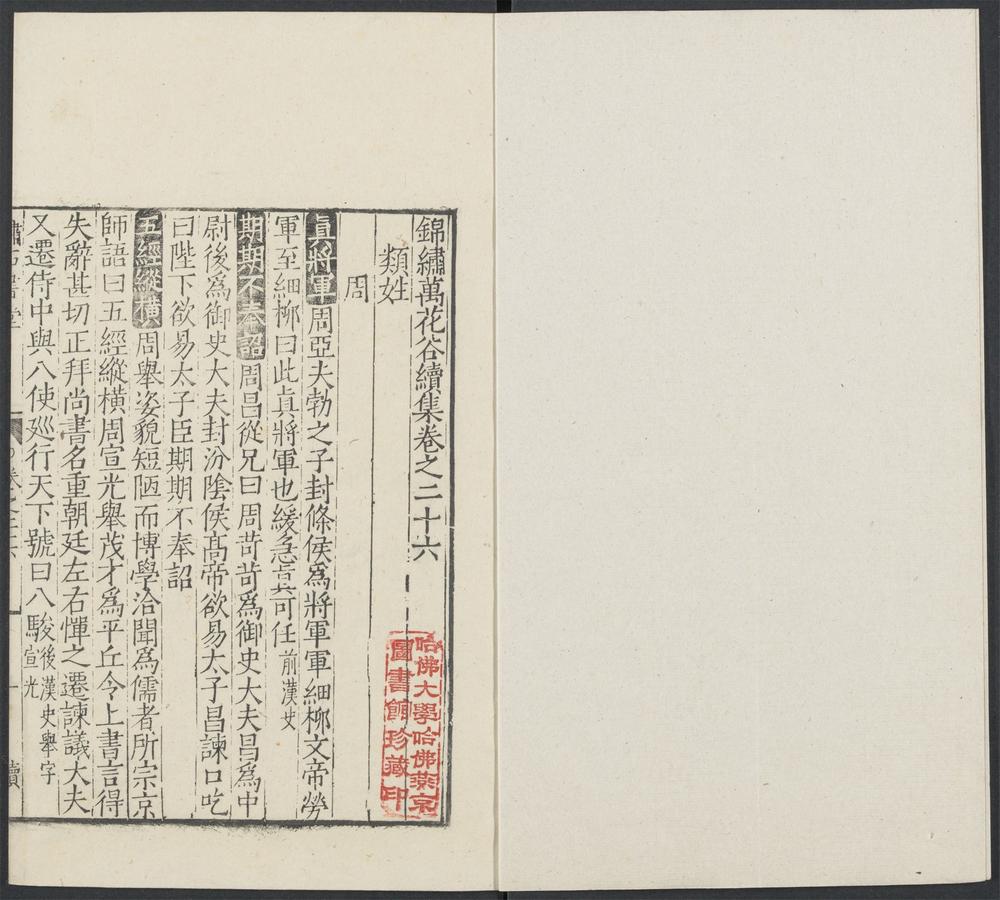 錦繡萬花谷續集卷之二十六
類姓
周
真將軍周亞夫勃之子封條侯爲將軍軍細柳文帝勞
軍至細柳曰此真將軍也緩急真可任前漢史
期期不奉詔周昌從兄曰周苛苛爲御史大夫昌爲中
尉後爲御史大夫封汾陰侯高帝欲易太子昌諫口吃
曰陛下欲易太子臣期期不奉詔
五經縱橫周舉姿貌短陋而博學洽聞爲儒者所宗京
師語曰五經縱橫周宣光舉茂才爲平丘令上書言得
失辭甚切正拜尚書名重朝廷左右憚之遷諫議大夫
又遷侍中與八使廵行天下號曰八駿後漢史舉字宣光
哈佛大學哈佛燕京
圖書館珍藏印